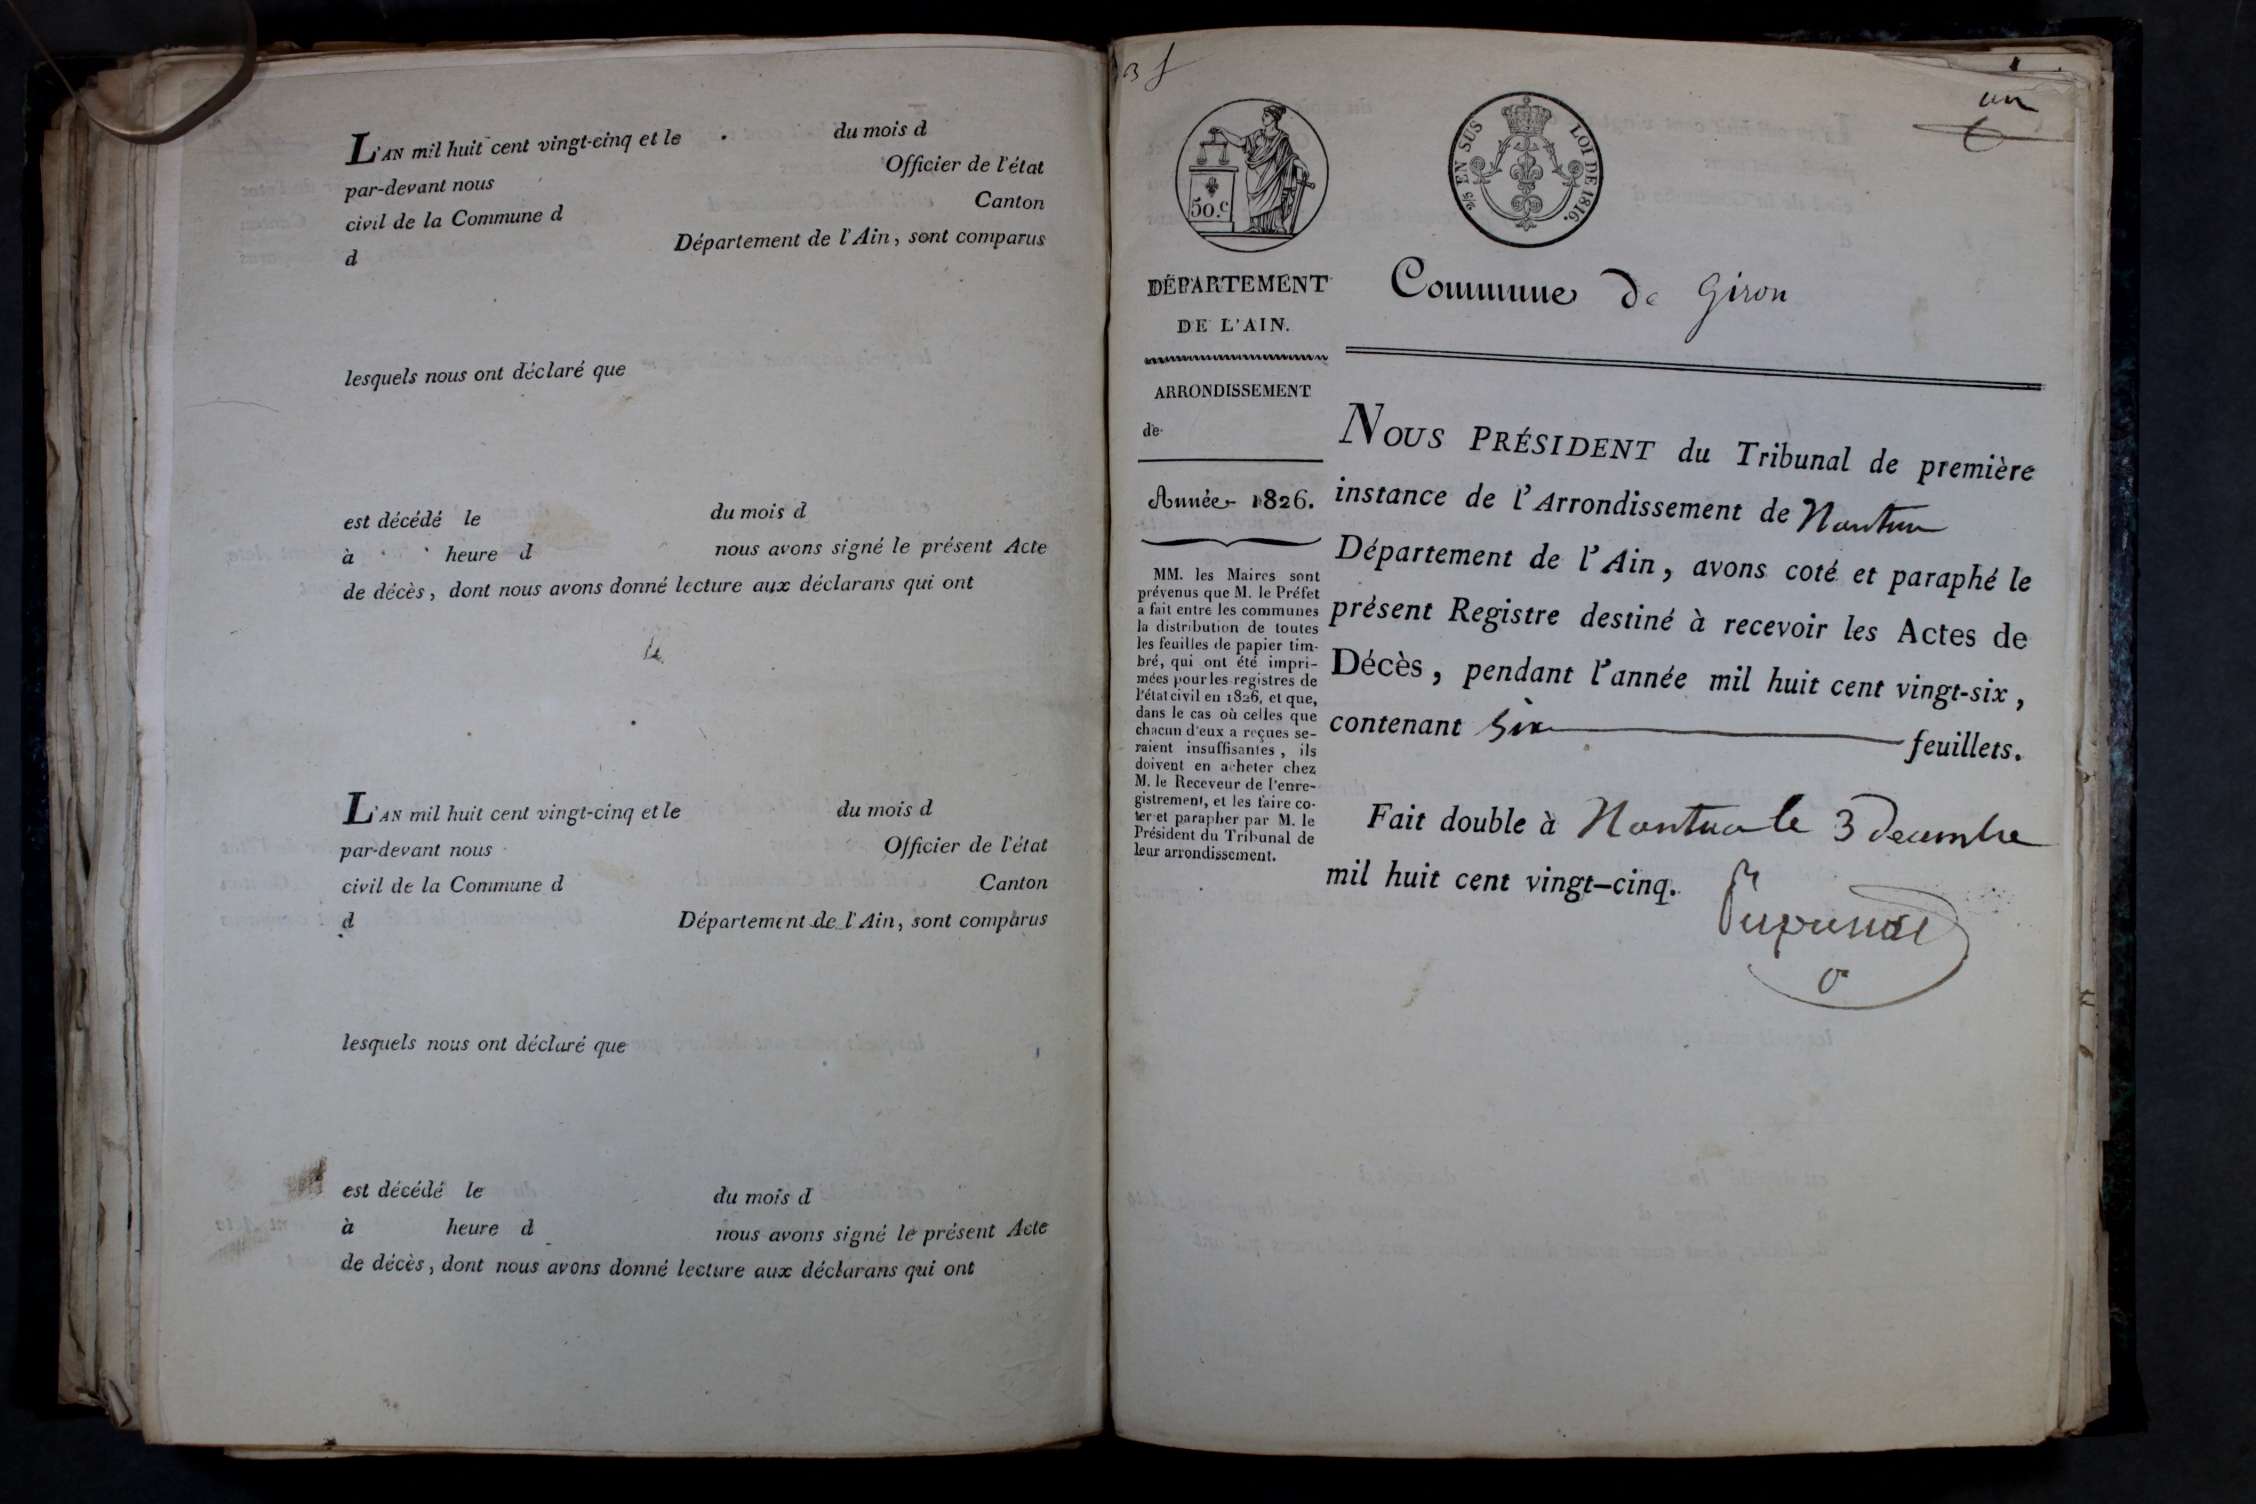 L'AN mil huit cent vingt-cinq et le du mois d
par-devant nous Officier de l'état
civil de la Commune d Canton
d Département de l'Ain, sont comparus
lesquels nous ont déclaré que
est décédé le du mois d
à heure d nous avons signé le présent Acte
de décès, dont nous avons donné lecture aux déclarans qui ont
L'AN mil huit cent vingt-cinq et le du mois d
par-devant nous Officier de l'état
civil de la Commune d Canton
d Département de l'Ain, sont comparus
lesquels nous ont déclaré que
est décédé le du mois d
à heure d nous avons signé le présent Acte
de décès, dont nous avons donné lecture aux déclarans qui ont
un
50.c
2/5 EN SUS LOI DE 1816.
DÉPARTEMENT
DE L'AIN.
ARRONDISSEMENT
de
Année 1826.
MM. les Maires sont
prévenus que M. le Préfet
a fait entre les communes
la distribution de toutes
les feuilles de papier tim-
bré, qui ont été impri-
mées pour les registres de
l'état civil en 1826, et que,
dans le cas où celles que
chacun d'eux a reçues se-
raient insuffisantes, ils
doivent en acheter chez
M. le Receveur de l'enre-
gistrement, et les faire co-
ter et parapher par M. le
Président du Tribunal de
leur arrondissement.
Commune de Giron
NOUS PRÉSIDENT du Tribunal de première
instance de l'Arrondissement de Nantua
Département de l'Ain, avons coté et paraphé le
présent Registre destiné à recevoir les Actes de
Décès, pendant l'année mil huit cent vingt-six,
contenant six feuillets.
Fait double à Nantua le 3 decembre
mil huit cent vingt-cinq.